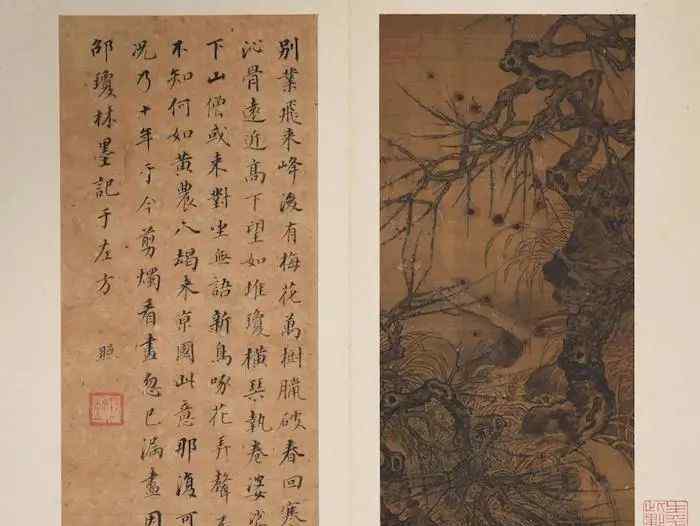 別業飛來峰後有梅花萬樹臘破春回寒
沁骨遠近高下望如堆瓊橫琴執卷婆娑
下山僧或來對坐無語新鳥啄花弄聲
不知何如黃農人朅來京國此意那復可
況乃十年于今剪燭看畫忽已漏盡因
邵瓊林墨記于左方 照